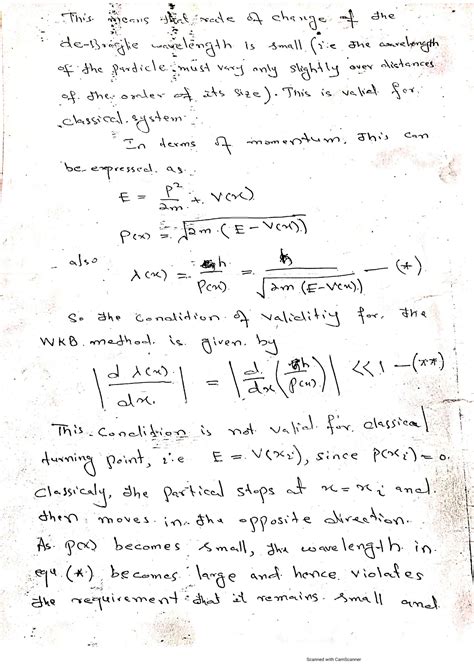 This means that rate of change of the
de-Broglie wavelength is small (i.e the wavelength
of the particle must vary only slightly over distances
of the order of its size). This is valid for
classical system.
In terms of momentum, this can
be expressed as
E = p²/2m + V(x)
P(x) = √2m (E - V(x))
also λ(x) = h/P(x) = h/√2m (E-V(x)) — (*)
So the condidition of validitiy for the
WKB method is given by
|d λ(x)/dx| = |d/dx (h/P(x))| << 1 — (**)
This Condition is not valid for classical
turning point, i.e E = V(xᵢ), since P(xᵢ) = 0.
Classicaly, the partical stops at x = xᵢ and
then moves in the opposite direction.
As P(x) becomes small, the wavelength in
equ (*) becomes large and hence violates
the requirement that it remains small and
Scanned with CamScanner